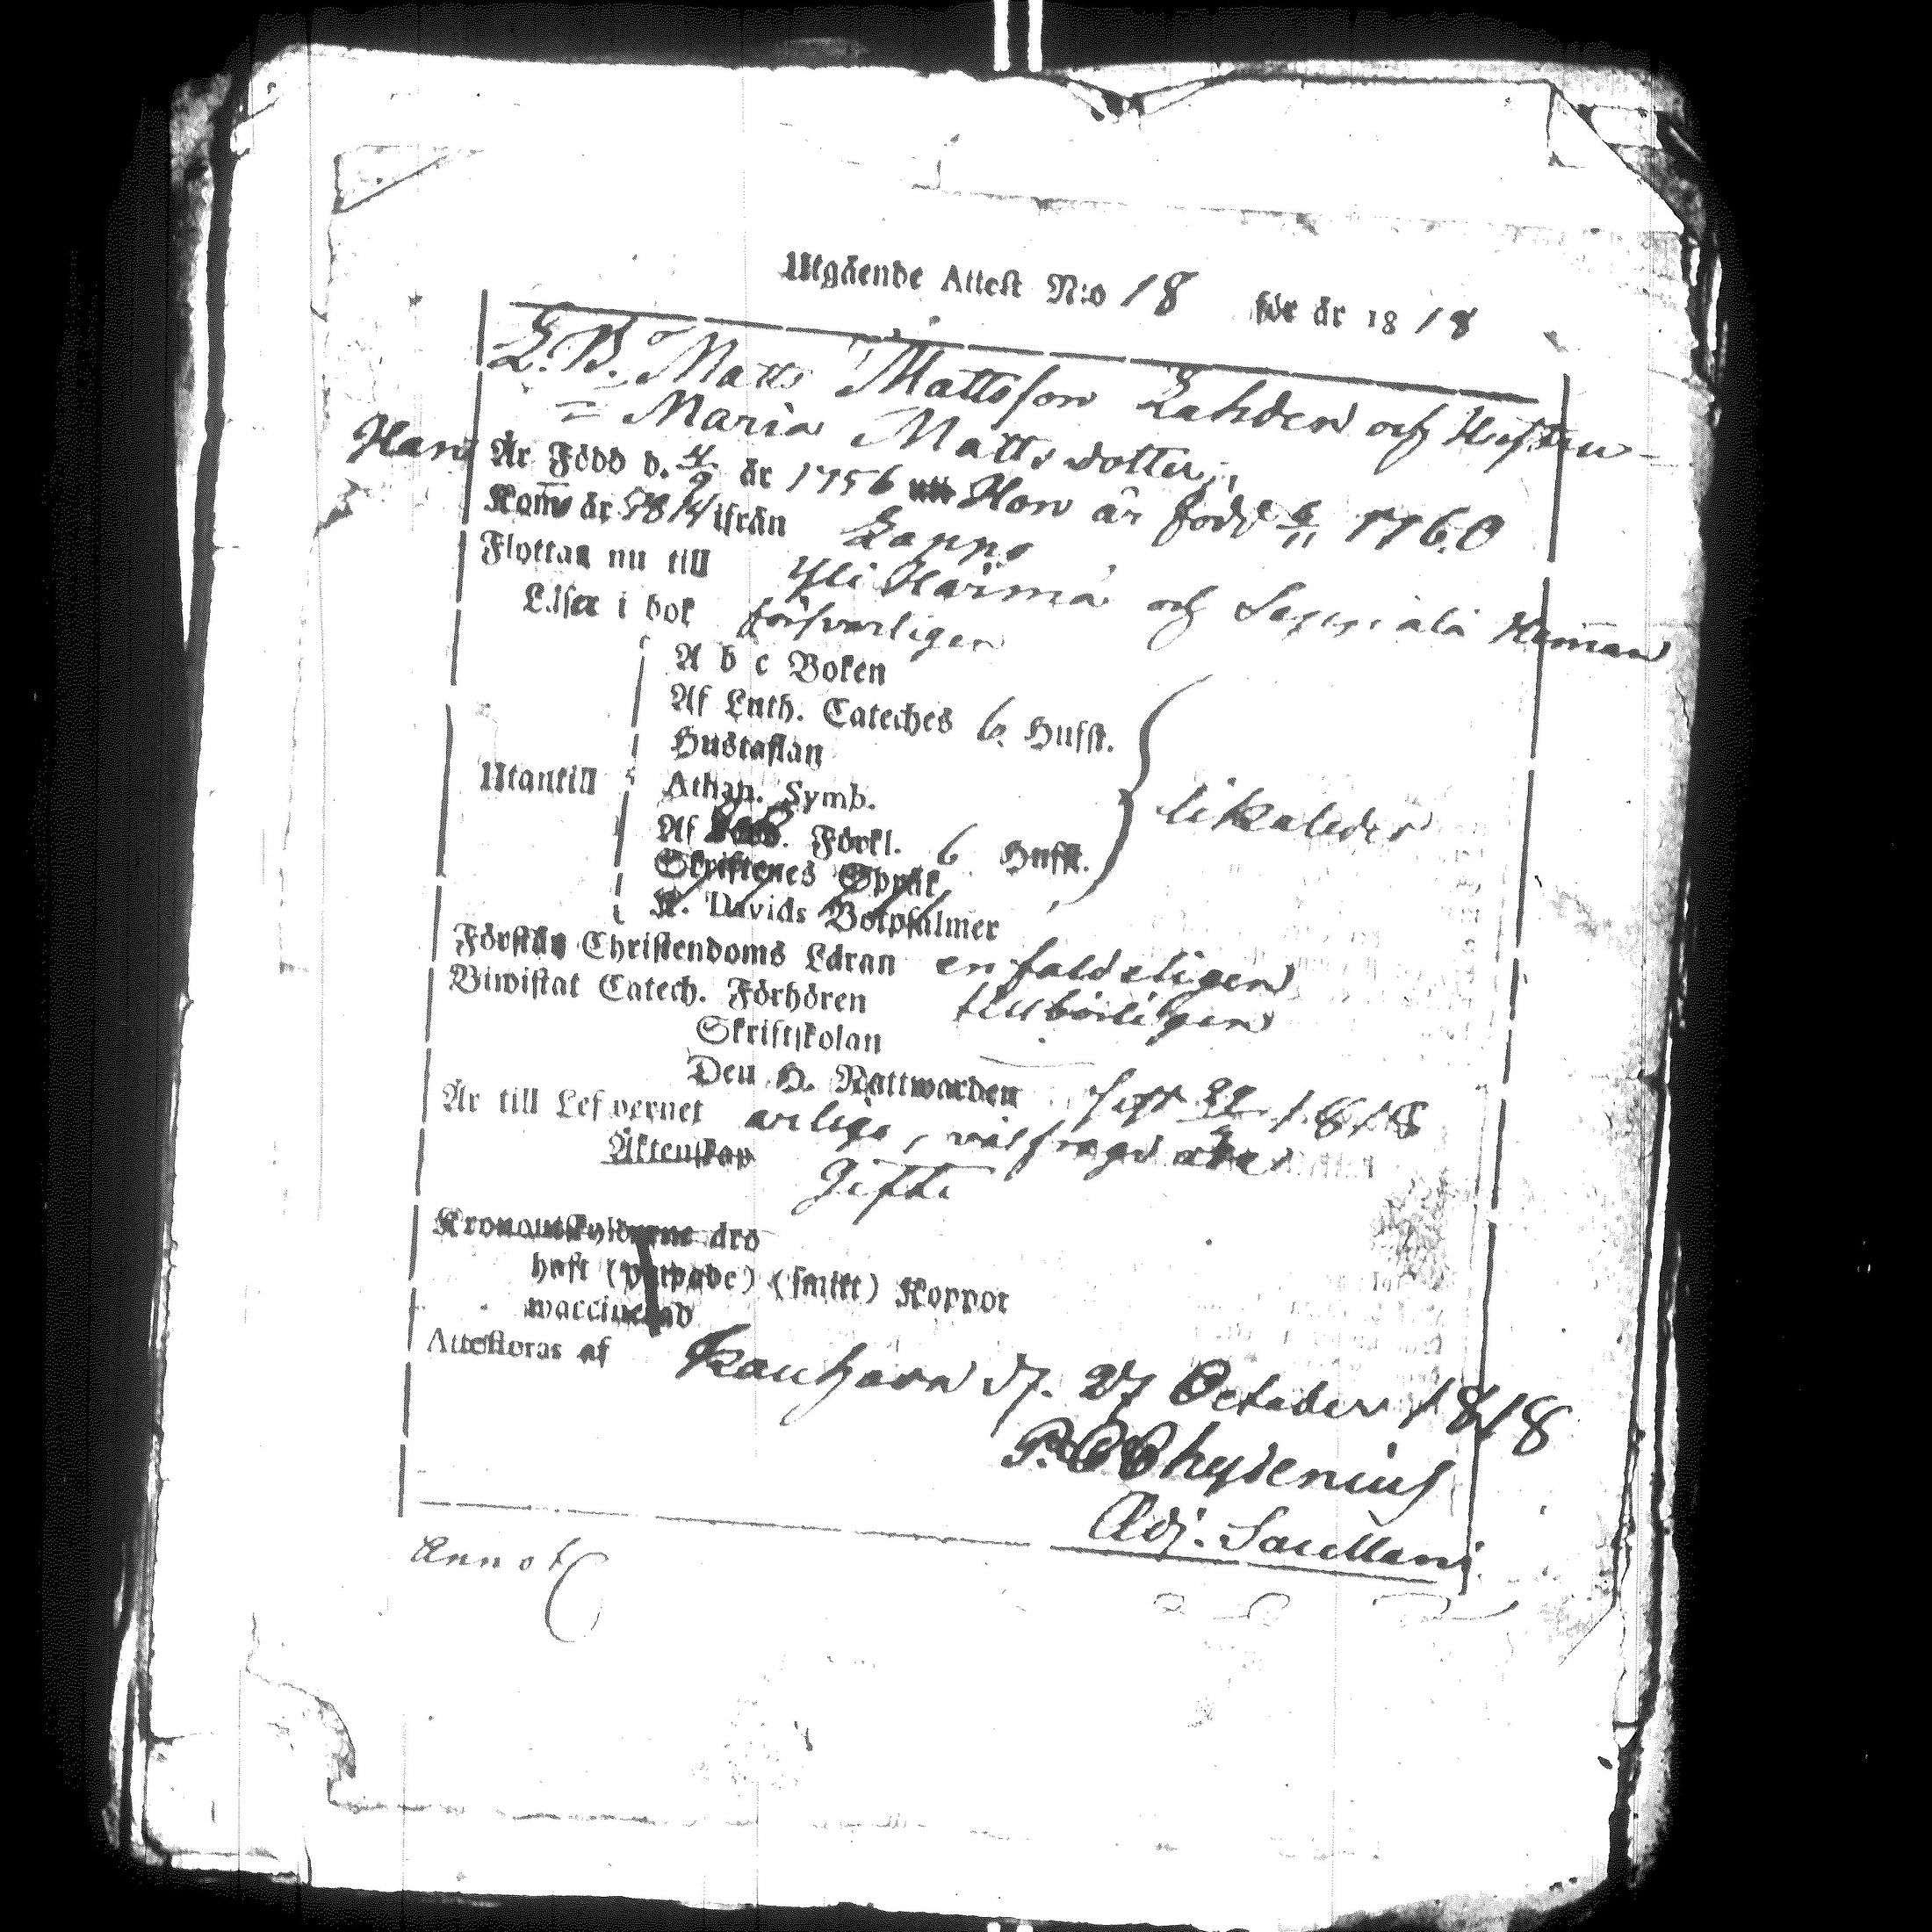 Utgående Attest N:o 18 för år 1818
L. B. Matts Mattsson Lahden och Hustru
= Maria Mattsdotter,
Han Är Född d. 4/9 år 1756 Hon är född 6/11 1760
Kom år 1814 ifrån Lappo
Flyttar nu till Yli Härmä och Seppälä Heman
Läser i bok försvarligen
A b c Boken
Af Luth. Cateches 6 Hufst.
Hustaflan
Utantill Athan. Symb. likaledes
Af Förkl. 6 Hufst.
Skriftenes Språk
K. Davids Botpsalmer
Förstår Christendoms Läran enfaldeligen
Biwistat Catech. Förhören tillbörligen
Skriftskolan
Den H. Nattwarden Sept 1818
Är till Lefvernet ärlige, välfrägd
Äktenskap Gifte
Kronoutskylderne drö
haft (ympade) (smitt) Koppor
waccinerad
Attesteras af Kauhava d. 27 October 1818
P. C Chydenius
Adj. Sacellani
Annot